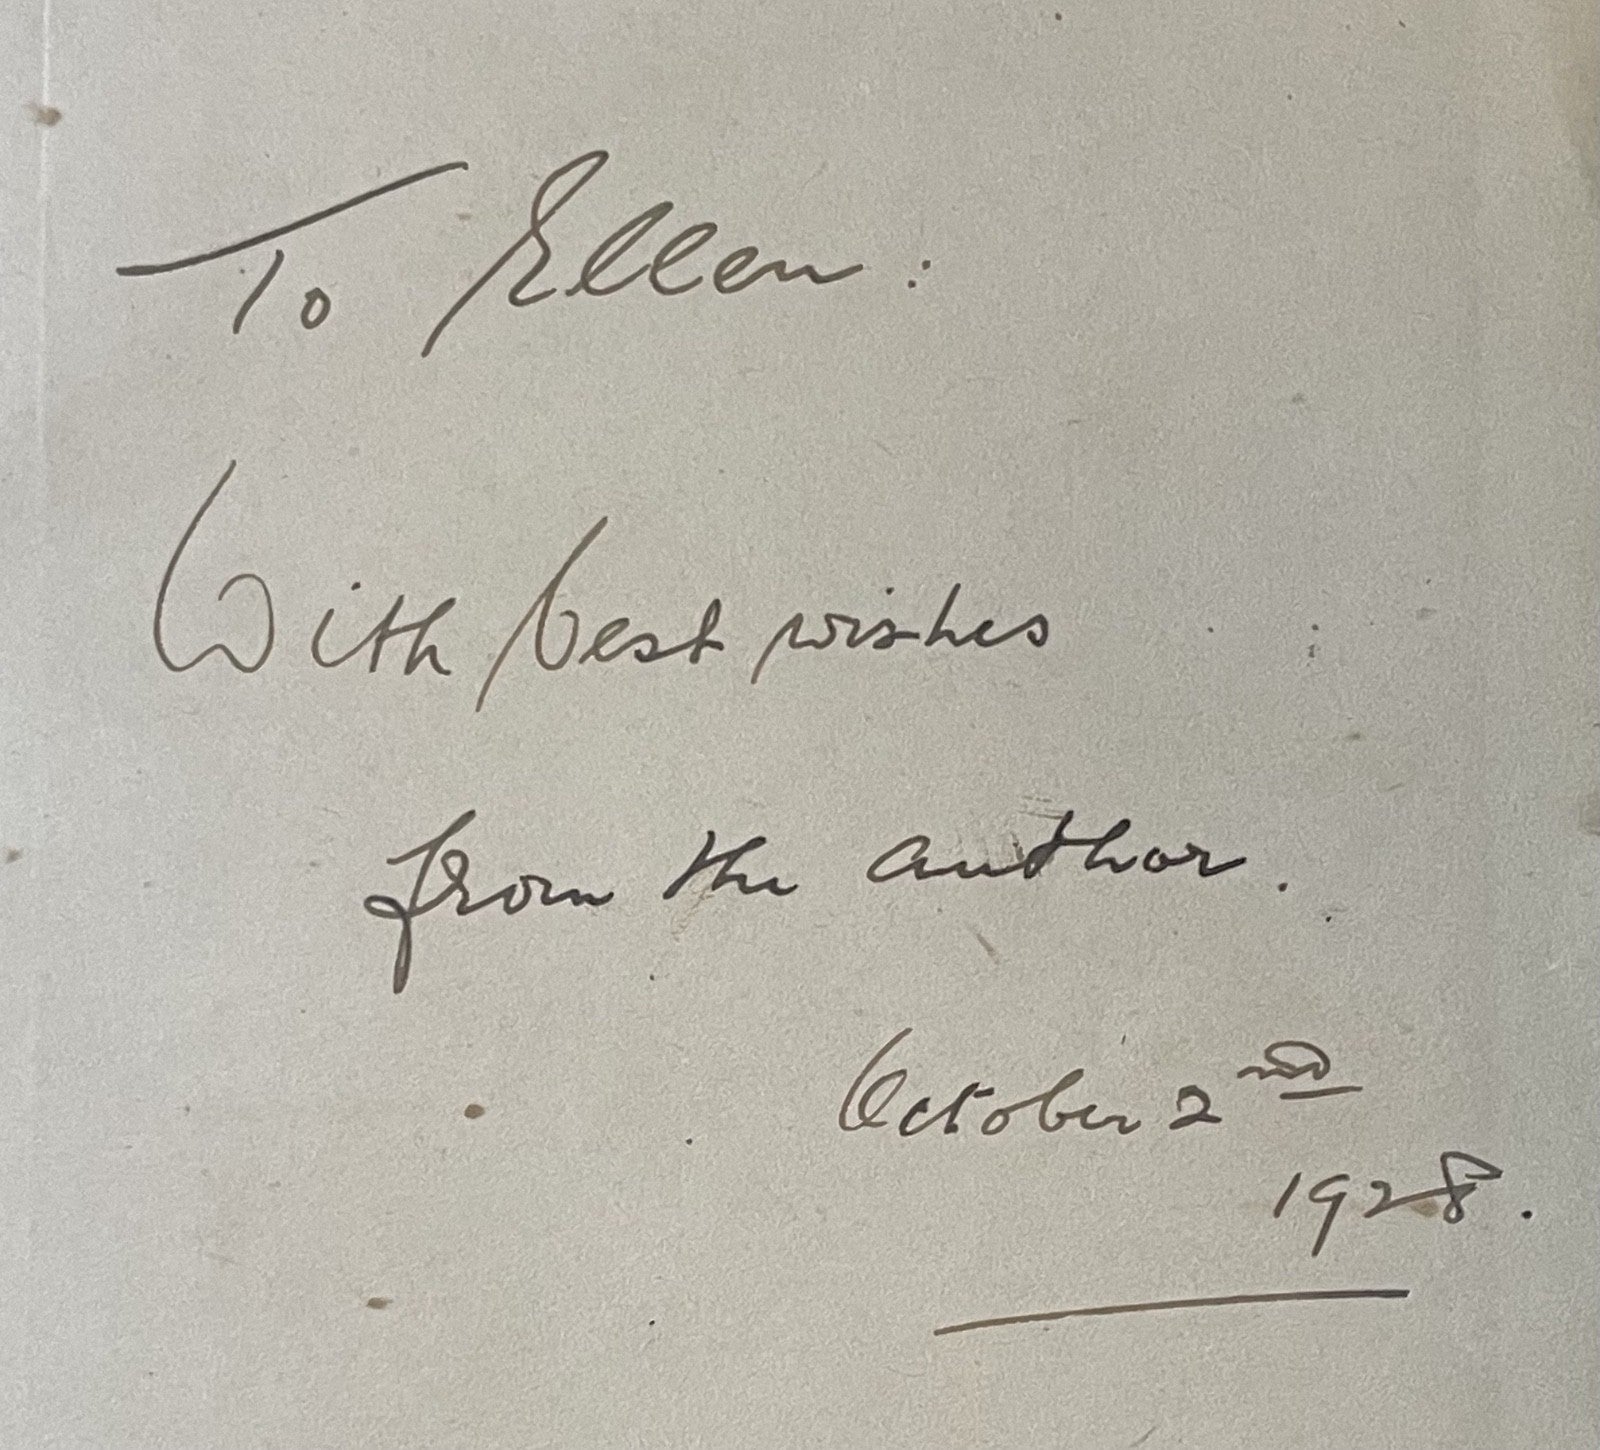 To Ellen:
With best wishes
from the author.
October 2nd
1928.